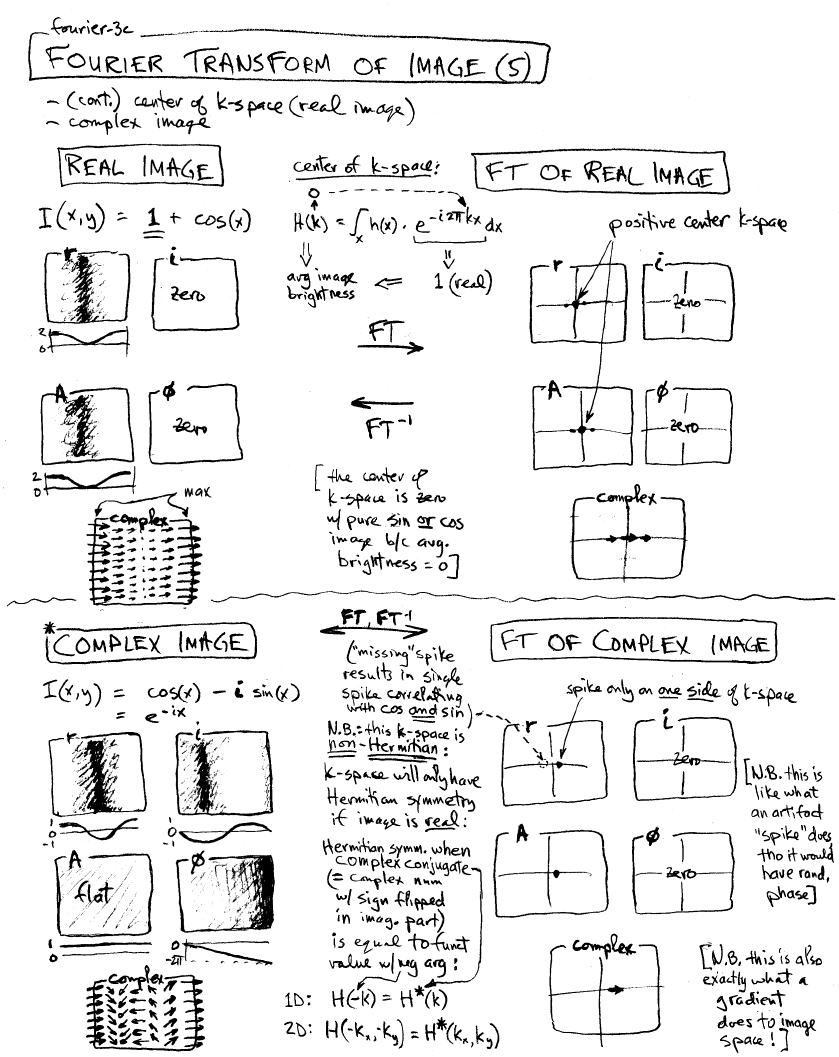 fourier-3c
FOURIER TRANSFORM OF IMAGE (5)
- (cont.) center of k-space (real image)
- complex image
REAL IMAGE
center of k-space:
FT OF REAL IMAGE
I(x,y) = 1 + cos(x)
0
H(k) = ∫x h(x) · e^-i2πkx dx
positive center k-space
avg image
brightness
⇐
1 (real)
r
i
zero
2
0
r
i
zero
FT
A
Ø
zero
2
0
FT⁻¹
A
Ø
zero
max
complex
[the center of
k-space is zero
w/ pure sin or cos
image b/c avg.
brightness = 0]
complex
*COMPLEX IMAGE
FT, FT⁻¹
FT OF COMPLEX IMAGE
I(x,y) = cos(x) - i sin(x)
= e^-ix
("missing" spike
results in single
spike correlating
with cos and sin)
N.B.: this k-space is
non-Hermitian:
k-space will only have
Hermitian symmetry
if image is real:
spike only on one side of k-space
r
i
1
0
-1
1
0
-1
r
i
zero
[N.B. this is
like what
an artifact
"spike" does
tho it would
have rand.
phase]
A
flat
Ø
1
0
0
-2π
Hermitian symm. when
complex conjugate
(= complex num
w/ sign flipped
in imag. part)
is equal to funct
value w/ neg arg:
A
Ø
zero
complex
1D: H(-k) = H*(k)
2D: H(-kx,-ky) = H*(kx,ky)
complex
[N.B. this is also
exactly what a
gradient
does to image
space!]